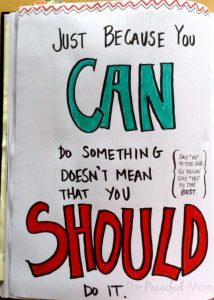 JUST BECAUSE YOU
CAN
DO SOMETHING
DOESN'T MEAN
THAT YOU
SAY "NO"
TO THE GOOD
SO YOU CAN
SAY "YES"
TO THE
BEST.
SHOULD
DO IT.
The Peaceful Mom